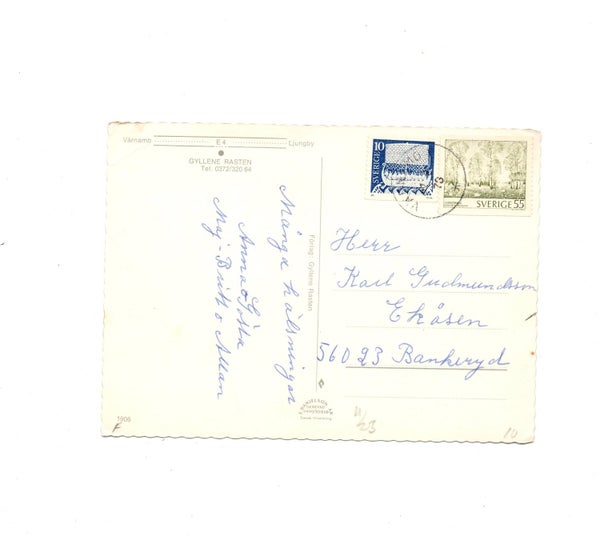 Värnamo E4 Ljungby
GYLLENE RASTEN
Tel. 0372/320 64
Många hälsningar
Anna o Gösta
Maj-Britt o Allan
Förlag: Gyllene Rasten
SVERIGE 10
SVERIGE 55
Herr
Karl Gudmundsson
Ekåsen
56023 Bankeryd
1606
10